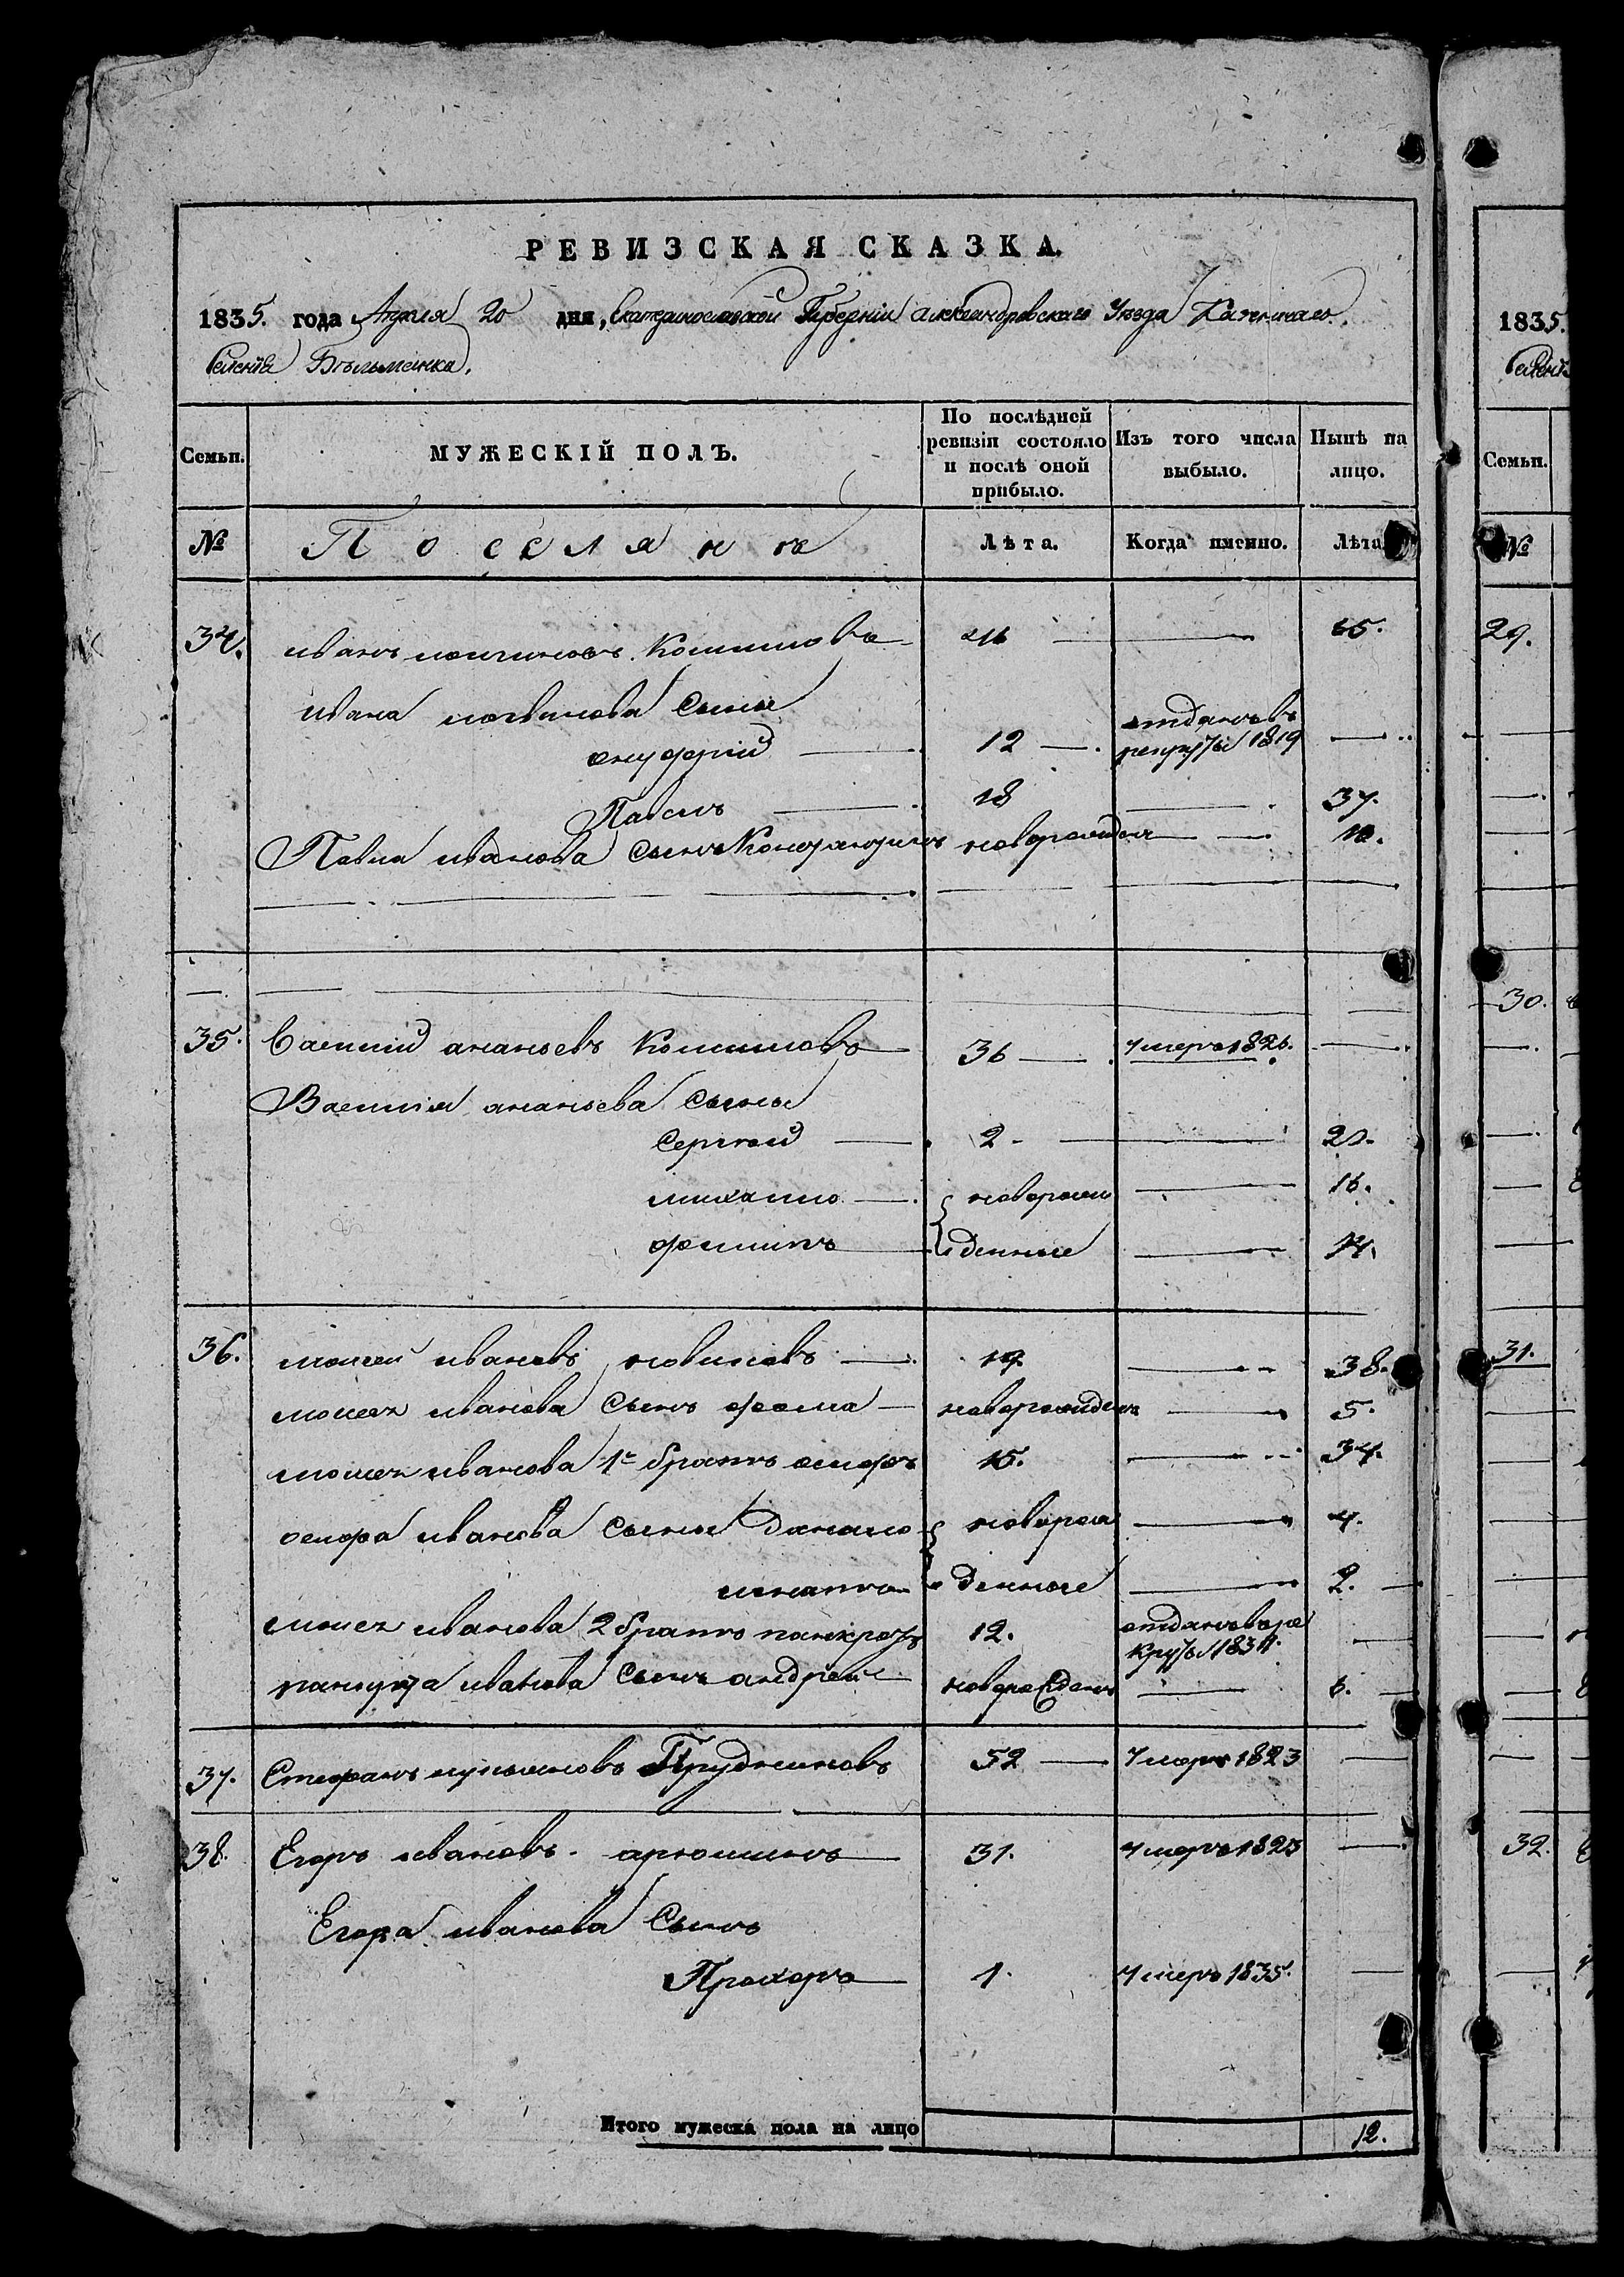 РЕВИЗСКАЯ СКАЗКА.
1835. года Апреля 20 дня, Екатеринославской Губерніи Александровскаго Уезда Казеннаго
Селенія Бѣльманка.
Семьи. МУЖЕСКІЙ ПОЛЪ. По послѣдней ревизіи состояло и послѣ оной прибыло. Изъ того числа выбыло. Нынѣ на лицо.
№ Поселяне Лѣта. Когда именно. Лѣта
34. иванъ 46 65.
ивана сыны
онуфрий 12 отданъ въ рекруты 1819
Павелъ 18 37.
Павла иванова сынъ Констянтинъ новорожденъ 10.
35. Василий ананьевъ 36 умеръ 1826.
Василия ананьева сыны
Сергей 2 21.
михаило новорож 16.
филипъ денные 14.
36. моисей ивановъ новиковъ 19 38.
моисея иванова сынъ фома новорожденъ 5.
моисея иванова 1й братъ осифъ 15. 34.
осифа иванова сыны данило новорож 4.
игнатъ денные 2.
моисея иванова 2 братъ панкратъ 12. отданъ въ ре
круты 1834.
иванова сынъ андрей новорожденъ 6.
37. Стефанъ Прудниковъ 52 умеръ 1823
38. Егоръ ивановъ. арюшинъ 31. умеръ 1823
Егора иванова сынъ
Прохоръ 1. умеръ 1835.
Итого мужеска пола на лицо 12.
1835.
Селенія
Семьи.
№
29.
30.
31.
32.